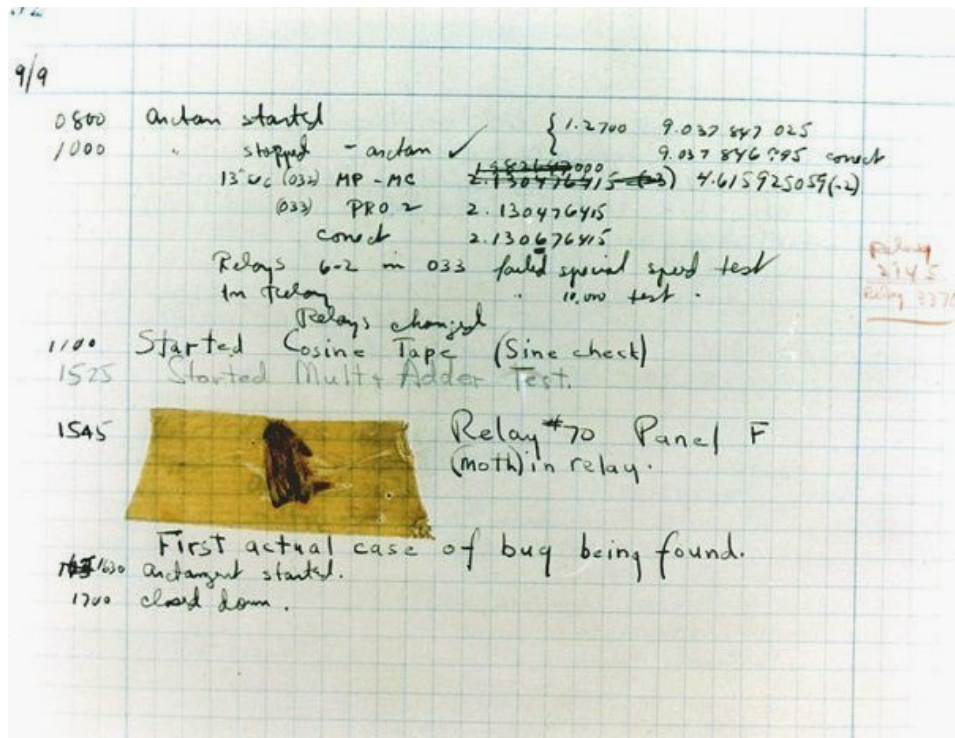 9/9
0800 antan started { 1.2700 9.037 847 025
1000 " stopped - antan ✓ 9.037 846 995 conect
13" uc (033) MP - MC 2.130476415 (-3) 4.615925059(-2)
(033) PRO 2 2.130476415
conect 2.130676415
Relays 6-2 in 033 failed special speed test
In Relay " 10,000 test .
Relays changed
Relay
3370
1100 Started Cosine Tape (Sine check)
1525 Started Mult + Adder Test.
1545 Relay #70 Panel F
(moth) in relay.
First actual case of bug being found.
1630 antangent started.
1700 closed down.